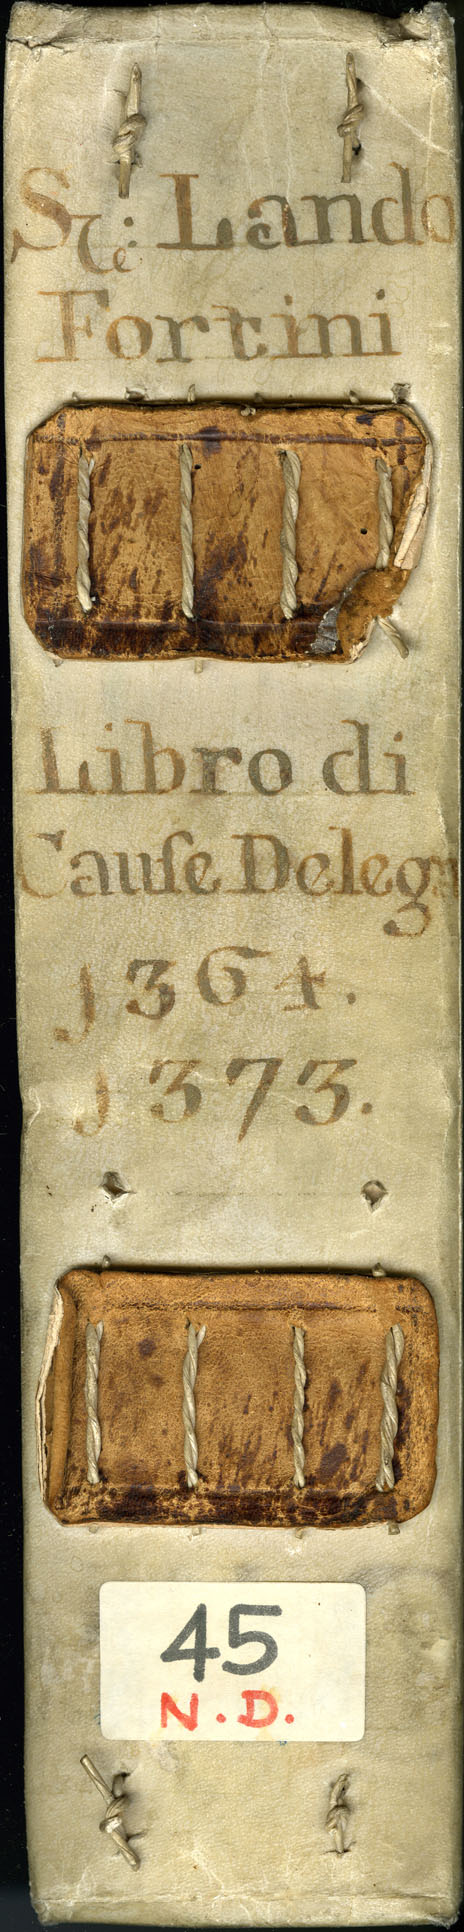 Sre: Lando
Fortini
Libro di
Cauſe Deleg
1364.
1373.
45
N.D.